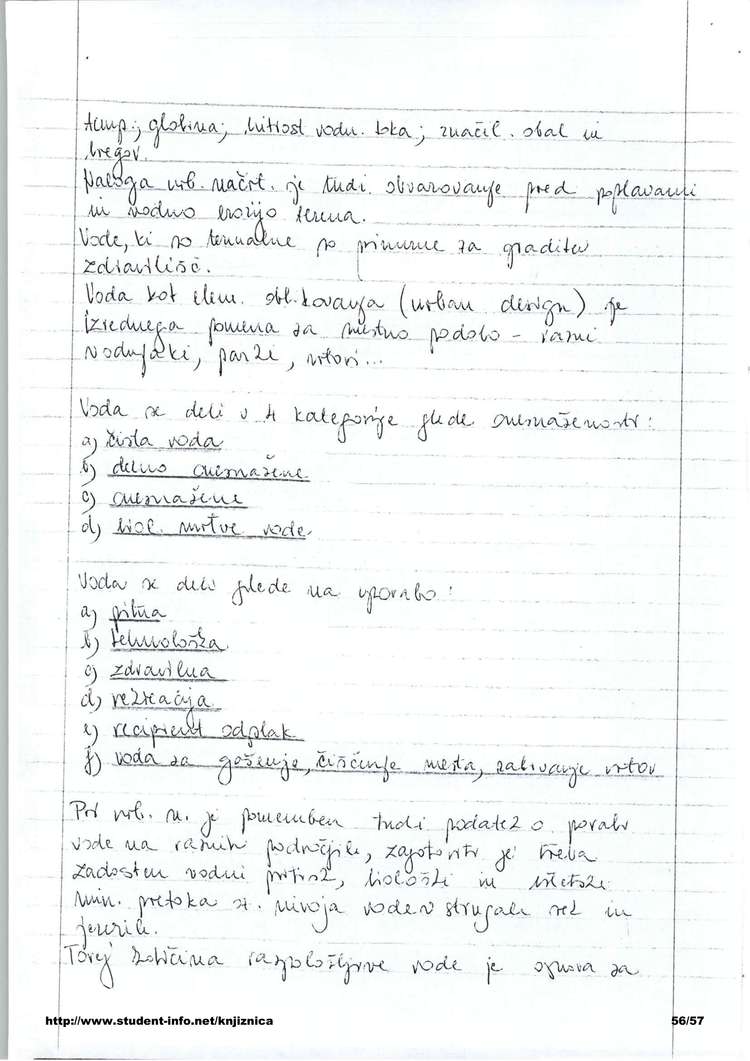 temp.; globina; hitrost vodn. toka; značil. obal in
bregov.
Naloga urb. načrt. je tudi obvarovanje pred poplavami
in vodno erozijo terena.
Vode, ki so termalne so primerne za graditev
zdravilišč.
Voda kot elem. oblikovanja (urban design) je
izrednega pomena za mestno podobo - razni
vodnjaki, parki, vrtovi...
Voda se deli v 4 kategorije glede onesnaženosti:
a) čista voda
b) delno onesnažene
c) onesnažene
d) biol. mrtve vode
Voda se deli glede na uporabo:
a) pitna
b) tehnološka
c) zdravilna
d) rekreacija
e) recipient odplak
f) voda za gašenje, čiščenje mesta, zalivanje vrtov
Pri urb. n. je pomemben tudi podatek o porabi
vode na raznih področjih, zagotoviti je treba
zadosten vodni pritisk, biološki in
min. pretoka oz. nivoja vode v strugah rek in
jezerih.
Torej količina razpoložljive vode je osnova za
http://www.student-info.net/knjiznica
56/57